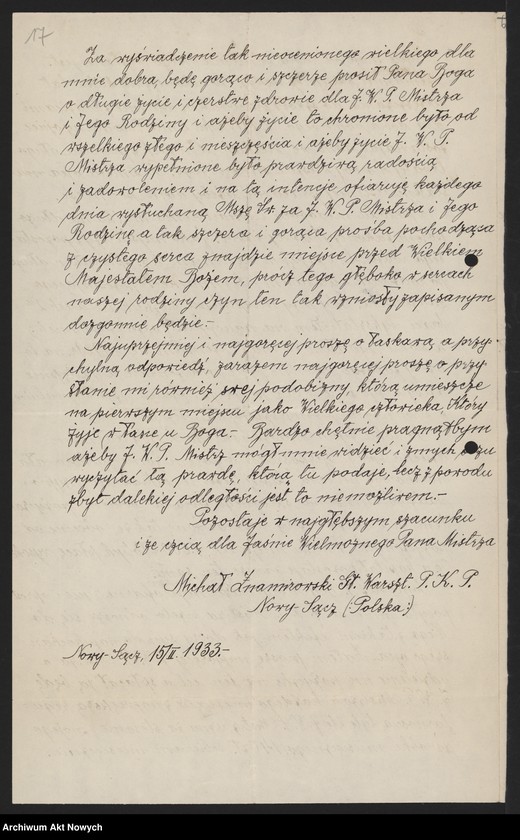 17
Za wyświadczenie tak nieocenionego wielkiego dla
mnie dobra, będę gorąco i szczerze prosił Pana Boga
o długie życie i czerstwe zdrowie dla J. W. P. Mistrza
i Jego Rodziny i ażeby życie to chronione było od
wszelkiego złego i nieszczęścia i ażeby życie J. W. P.
Mistrza wypełnione było prawdziwą radością
i zadowoleniem i na tą intencje ofiaruję każdego
dnia wysłuchaną Mszę Św. za J. W. P. Mistrza i Jego
Rodzinę a tak szczera i gorąca prośba pochodząca
z czystego serca znajdzie miejsce przed Wielkiem
Majestatem Bożem, procz tego głęboko w sercach
naszej rodziny czyn ten tak wzniosły zapisanym
dozgonnie będzie.-
Najuprzejmiej i najgoręcej proszę o łaskawą a przy-
chylną odpowiedź, zarazem najgoręcej proszę o przy-
słanie mi również swej podobizny, którą umieszcze
na pierwszym miejscu jako Wielkiego człowieka, Który
żyje w łasce u Boga.- Bardzo chętnie pragnąłbym
ażeby J. W. P. Mistrz mógł mnie widzieć i z mych
wyczytać tą prawdę, którą tu podaje, lecz z powodu
zbyt dalekiej odległości jest to niemożliwem.-
Pozostaje w najgłębszym szacunku
i ze czcią dla Jaśnie Wielmożnego Pana Mistrza
Michał Znamirowski St. Warszt. P. K. P.
Nowy-Sącz (:Polska:)
Nowy-Sącz, 15/II. 1933.-
Archiwum Akt Nowych